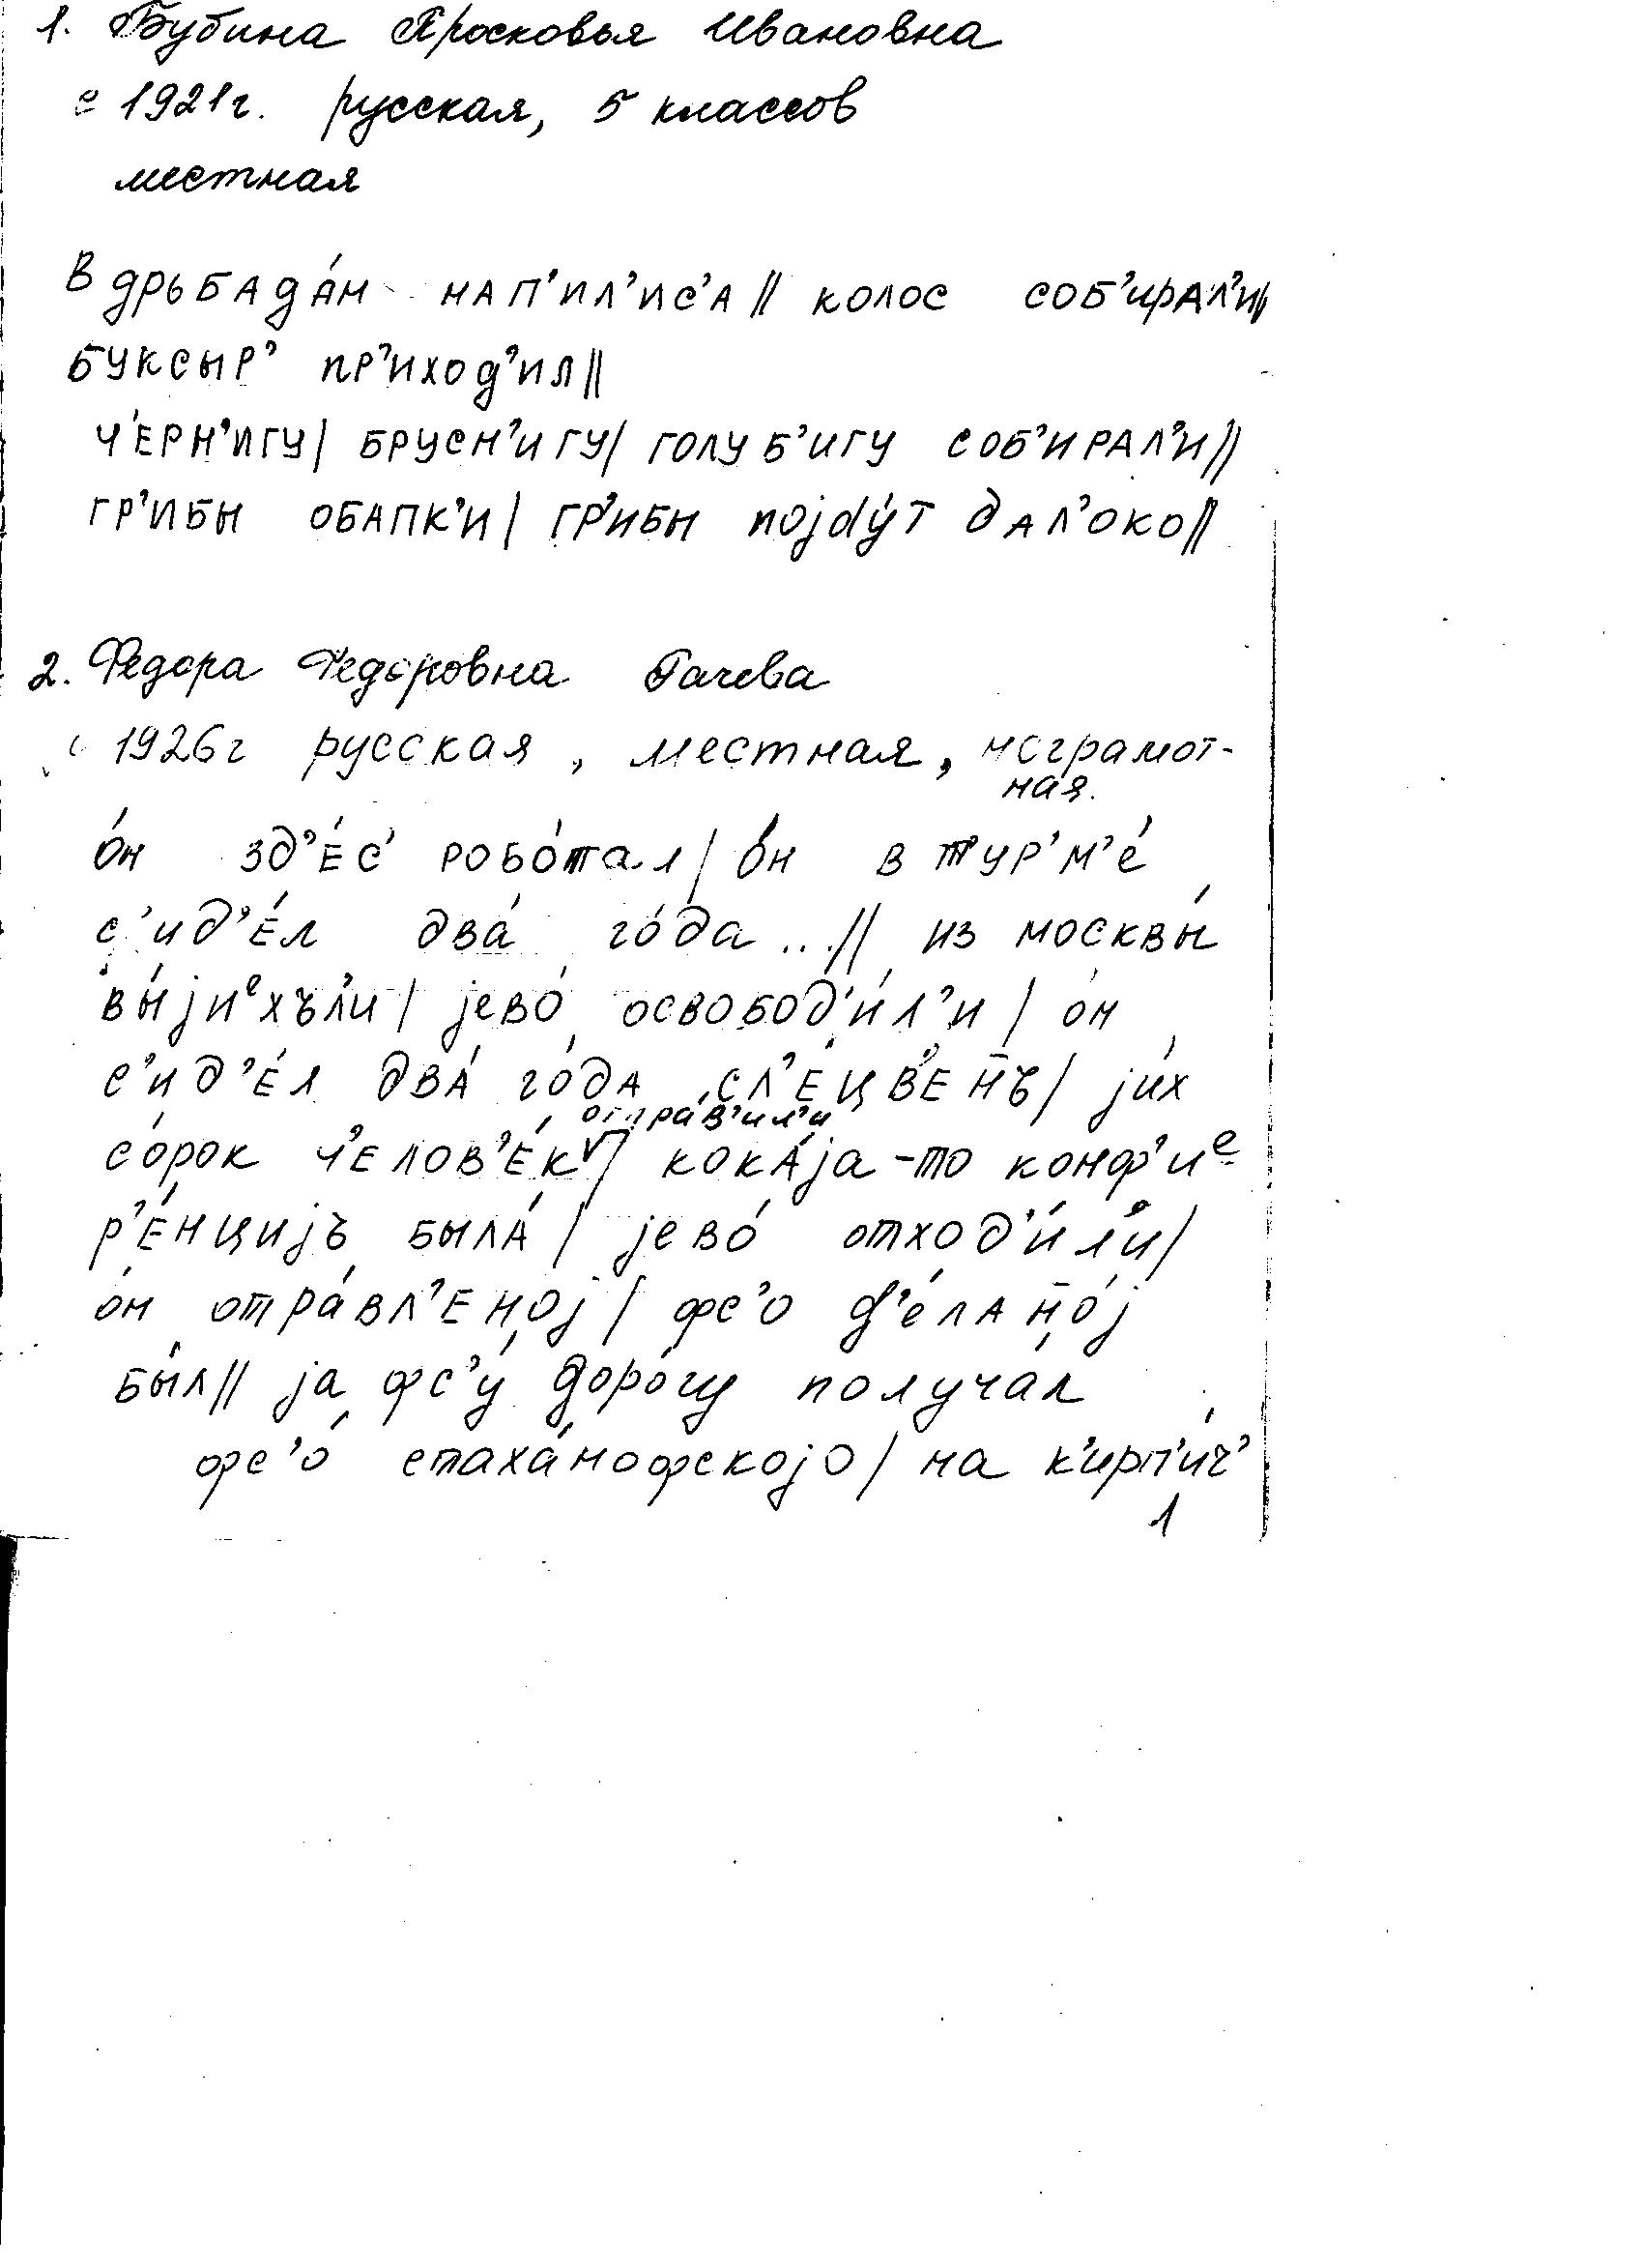 1. Бубина Просковья Ивановна
с 1921г. русская, 5 классов
местная
В дрьбада́н нап'ил'ис'а // колос соб'ирал'и //
буксыр' пр'иход'ил //
ч'ерн'игу / брусн'игу / голуб'игу соб'ирал'и //
гр'ибы обапк'и / гр'ибы поjду́т дал'око //
2. Федора Федоровна Гачева
с 1926г русская, местная, неграмот-
ная.
о́н зд'е́с' робо́тал / о́н в тур'м'е́
с'ид'е́л два́ го́да ... // из москвы́
вы́jиᵉхъл'и / jево́ освобод'и́л'и / о́н
с'ид'е́л два́ го́да сл'е́цв'ен̄ъ / jи́х
отпра́в'ил'и
со́рок ч'елов'е́к ∨ / кока́jа-то конф'иᵉ
р'е́нциjъ была́ / jево́ отход'и́л'и /
о́н отра́вл'еноj / фс'о д'е́лан̄оj
бы́л // jа фс'у́ доро́гу получа́л
фс'о́ стаха́нофскоjо / на к'ирп'и́ч'
1